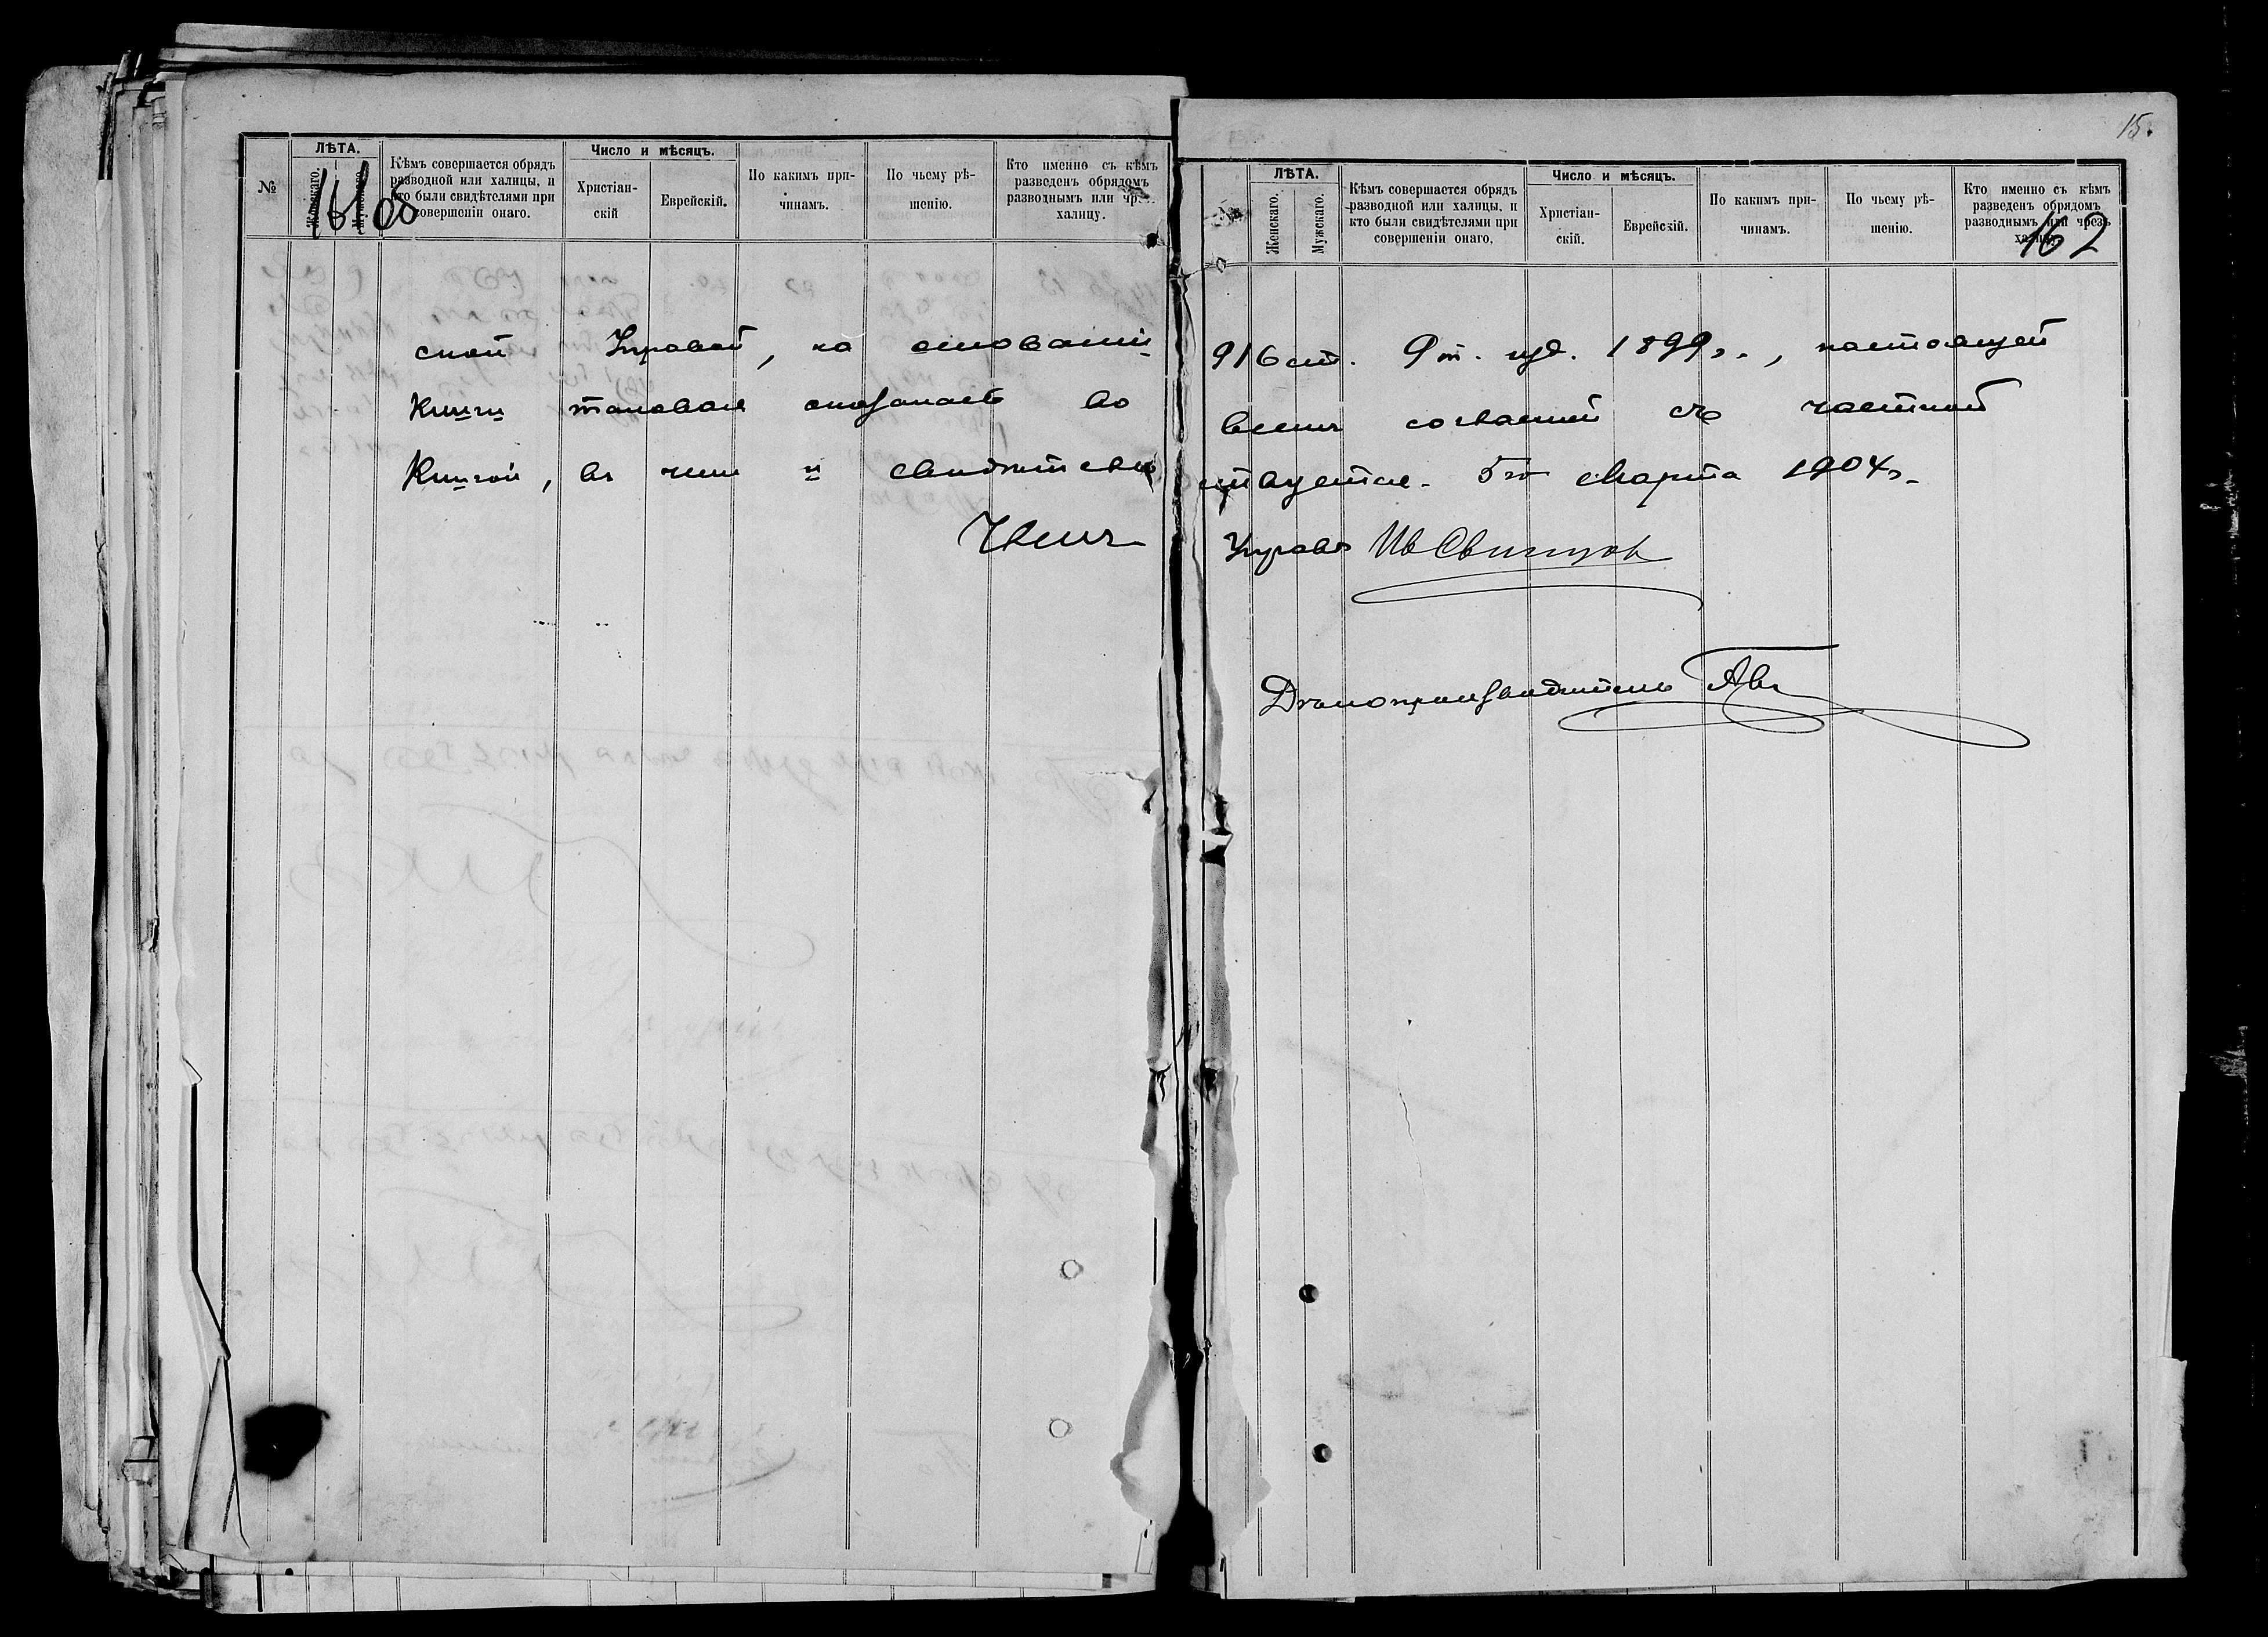 15.
№
ЛѢТА.
Женскаго.
Мужскаго.
Кѣмъ совершается обрядъ
разводной или халицы, и
кто были свидѣтелями при
совершеніи онаго.
Число и мѣсяцъ.
Христіан-
скій
Еврейскій.
По какимъ при-
чинамъ.
По чьему рѣ-
шенію.
Кто именно съ кѣмъ
разведенъ обрядомъ
разводнымъ или
халицу.
ЛѢТА.
Женскаго.
Мужскаго.
Кѣмъ совершается обрядъ
разводной или халицы, и
кто были свидѣтелями при
совершеніи онаго.
Число и мѣсяцъ.
Христіан-
скій.
Еврейскій.
По какимъ при-
чинамъ.
По чьему рѣ-
шенію.
Кто именно съ кѣмъ
разведенъ обрядомъ
разводнымъ или чрезъ
162
ской Управой, на основаніи 916 ст. 9 т. изд. 1899 г., настоящей
Книги таковая оказалась во всемъ согласной съ частной
Книгой, въ чемъ и свидѣтельствуется. 5го Марта 1904 г.
Членъ Управы
Дѣлопроизводитель